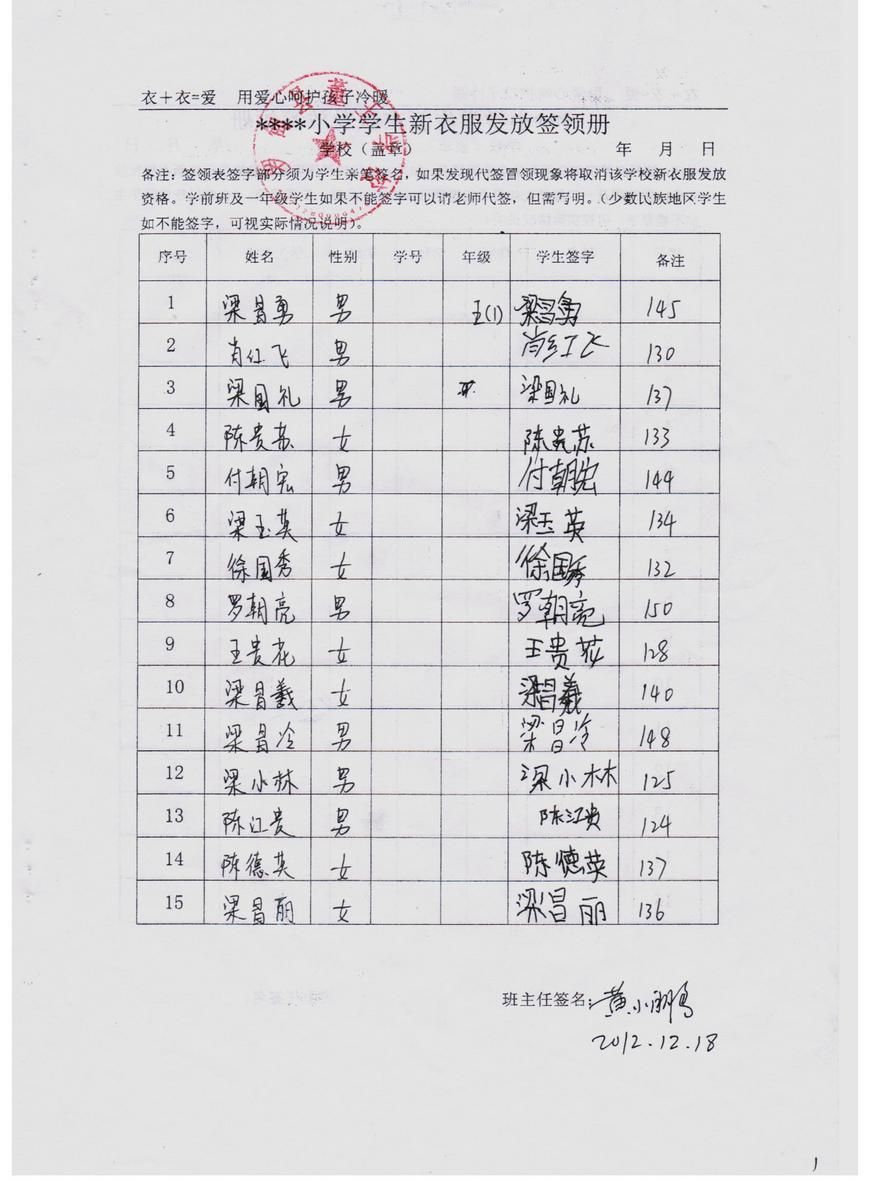 衣＋衣=爱 用爱心呵护孩子冷暖
****小学学生新衣服发放签领册
学校（盖章） 年 月 日
备注：签领表签字部分须为学生亲笔签名，如果发现代签冒领现象将取消该学校新衣服发放
资格。学前班及一年级学生如果不能签字可以请老师代签，但需写明。（少数民族地区学生
如不能签字，可视实际情况说明）。
序号 姓名 性别 学号 年级 学生签字 备注
1 梁昌勇 男 五(1) 梁昌勇 145
2 肖红飞 男 肖红飞 130
3 梁国礼 男 梁国礼 137
4 陈贵苏 女 陈贵苏 133
5 付朝宏 男 付朝宏 144
6 梁玉英 女 梁玉英 134
7 徐国秀 女 徐国秀 132
8 罗朝亮 男 罗朝亮 150
9 王贵花 女 王贵花 128
10 梁昌羲 女 梁昌羲 140
11 梁昌冷 男 梁昌冷 148
12 梁小林 男 梁小林 125
13 陈江贵 男 陈江贵 124
14 陈德英 女 陈德英 137
15 梁昌丽 女 梁昌丽 136
班主任签名：黄小鹏
2012.12.18
1